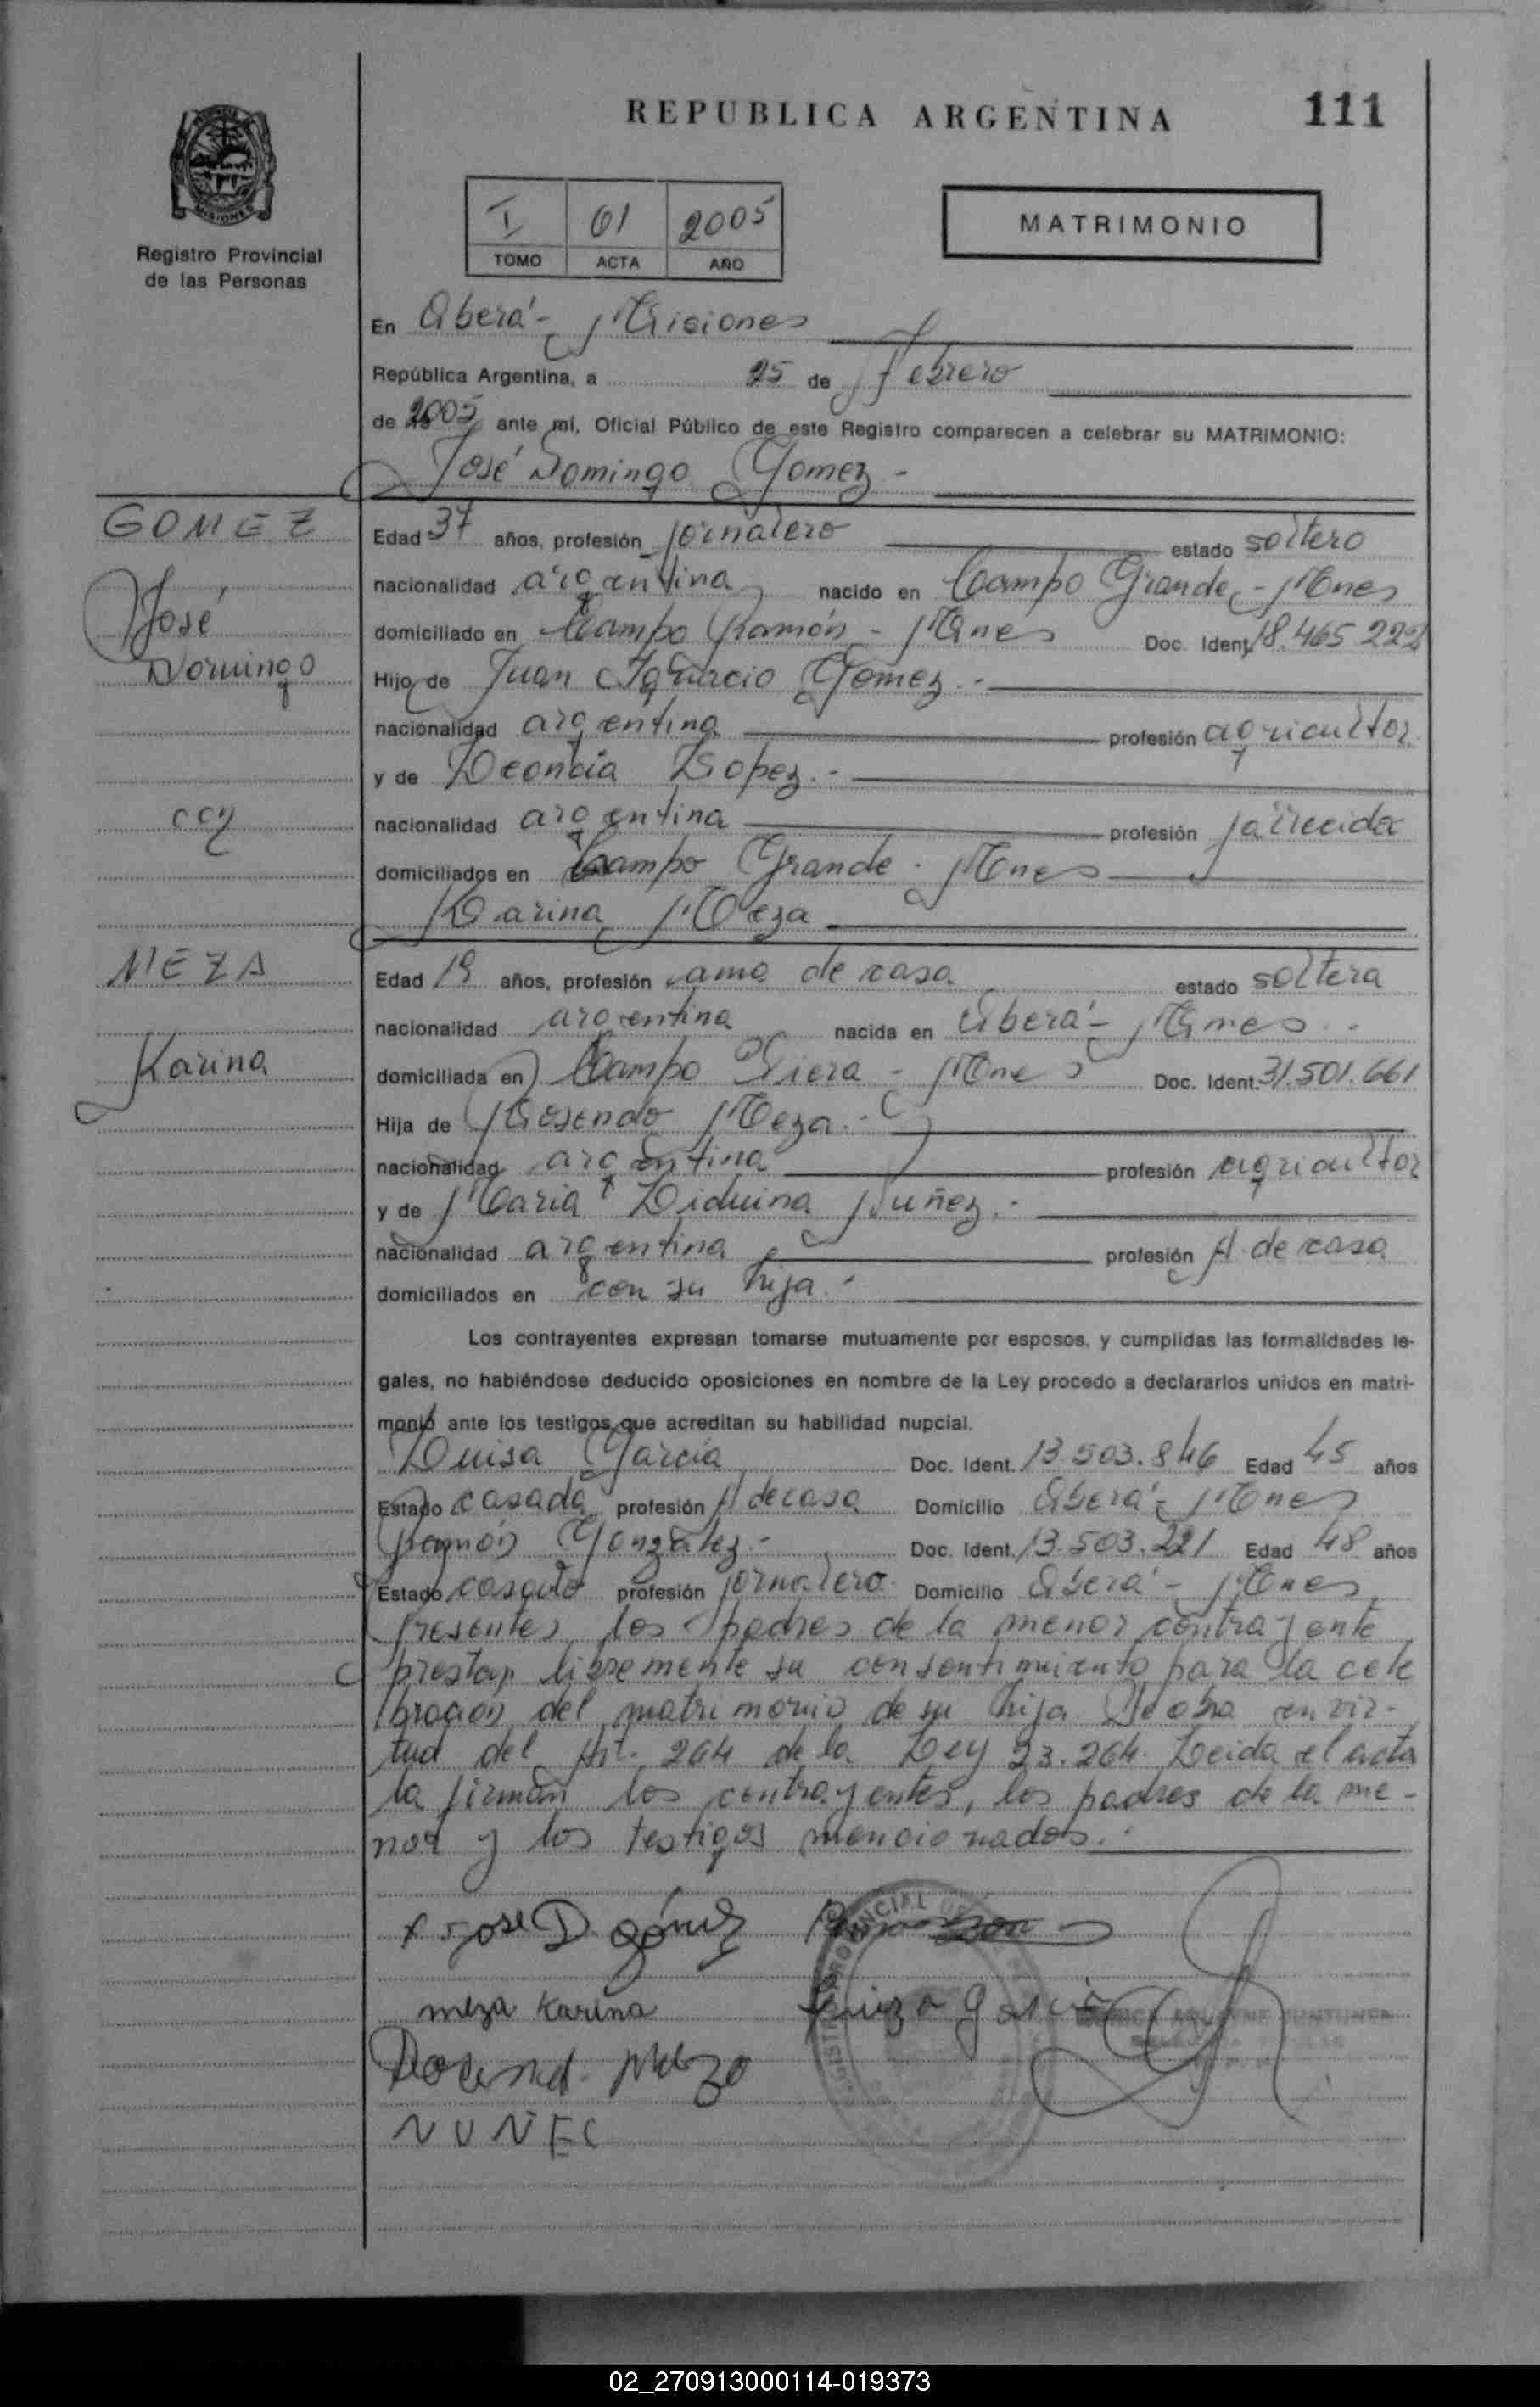 REPUBLICA ARGENTINA 111
MISIONES
Registro Provincial
de las Personas
I 61 2005
TOMO ACTA AÑO
MATRIMONIO
En Oberá - Misiones
República Argentina, a 25 de Febrero
de 2005 ante mí, Oficial Público de este Registro comparecen a celebrar su MATRIMONIO:
José Domingo Gomez -
GOMEZ
José
Domingo
Edad 37 años, profesión jornalero estado soltero
nacionalidad argentina nacido en Campo Grande - Mnes
domiciliado en Campo Ramón - Mnes Doc. Ident. 18.465.222
Hijo de Juan Ignacio Gomez.-
nacionalidad argentina profesión agricultor
y de Leoncia Lopez.-
nacionalidad argentina profesión fallecida
domiciliados en Campo Grande - Mnes
Karina Meza
MEZA
Karina
Edad 19 años, profesión ama de casa estado soltera
nacionalidad argentina nacida en Oberá - Mnes
domiciliada en Campo Viera - Mnes Doc. Ident. 31.501.661
Hija de Rosendo Meza.-
nacionalidad argentina profesión agricultor
y de Maria Liduina Nuñez.-
nacionalidad argentina profesión A. de casa
domiciliados en con su hija.-
Los contrayentes expresan tomarse mutuamente por esposos, y cumplidas las formalidades le-
gales, no habiéndose deducido oposiciones en nombre de la Ley procedo a declararlos unidos en matri-
monio ante los testigos que acreditan su habilidad nupcial.
Luisa Garcia Doc. Ident. 13.503.846 Edad 45 años
Estado casada profesión A de casa Domicilio Oberá - Mnes
Ramón Gonzalez.- Doc. Ident. 13.503.221 Edad 48 años
Estado casado profesión jornalero Domicilio Oberá - Mnes
Presentes los padres de la menor contrayente
prestan libremente su consentimiento para la cele
bración del matrimonio de su hija. Se obra en vir-
tud del Art. 264 de la Ley 23.264. Leida el acta
la firman los contrayentes, los padres de la me-
nor y los testigos mencionados.-
x Jose D gómez
meza Karina Luiza Garcia
Rosend. Meza
NUÑEC
02_270913000114-019373